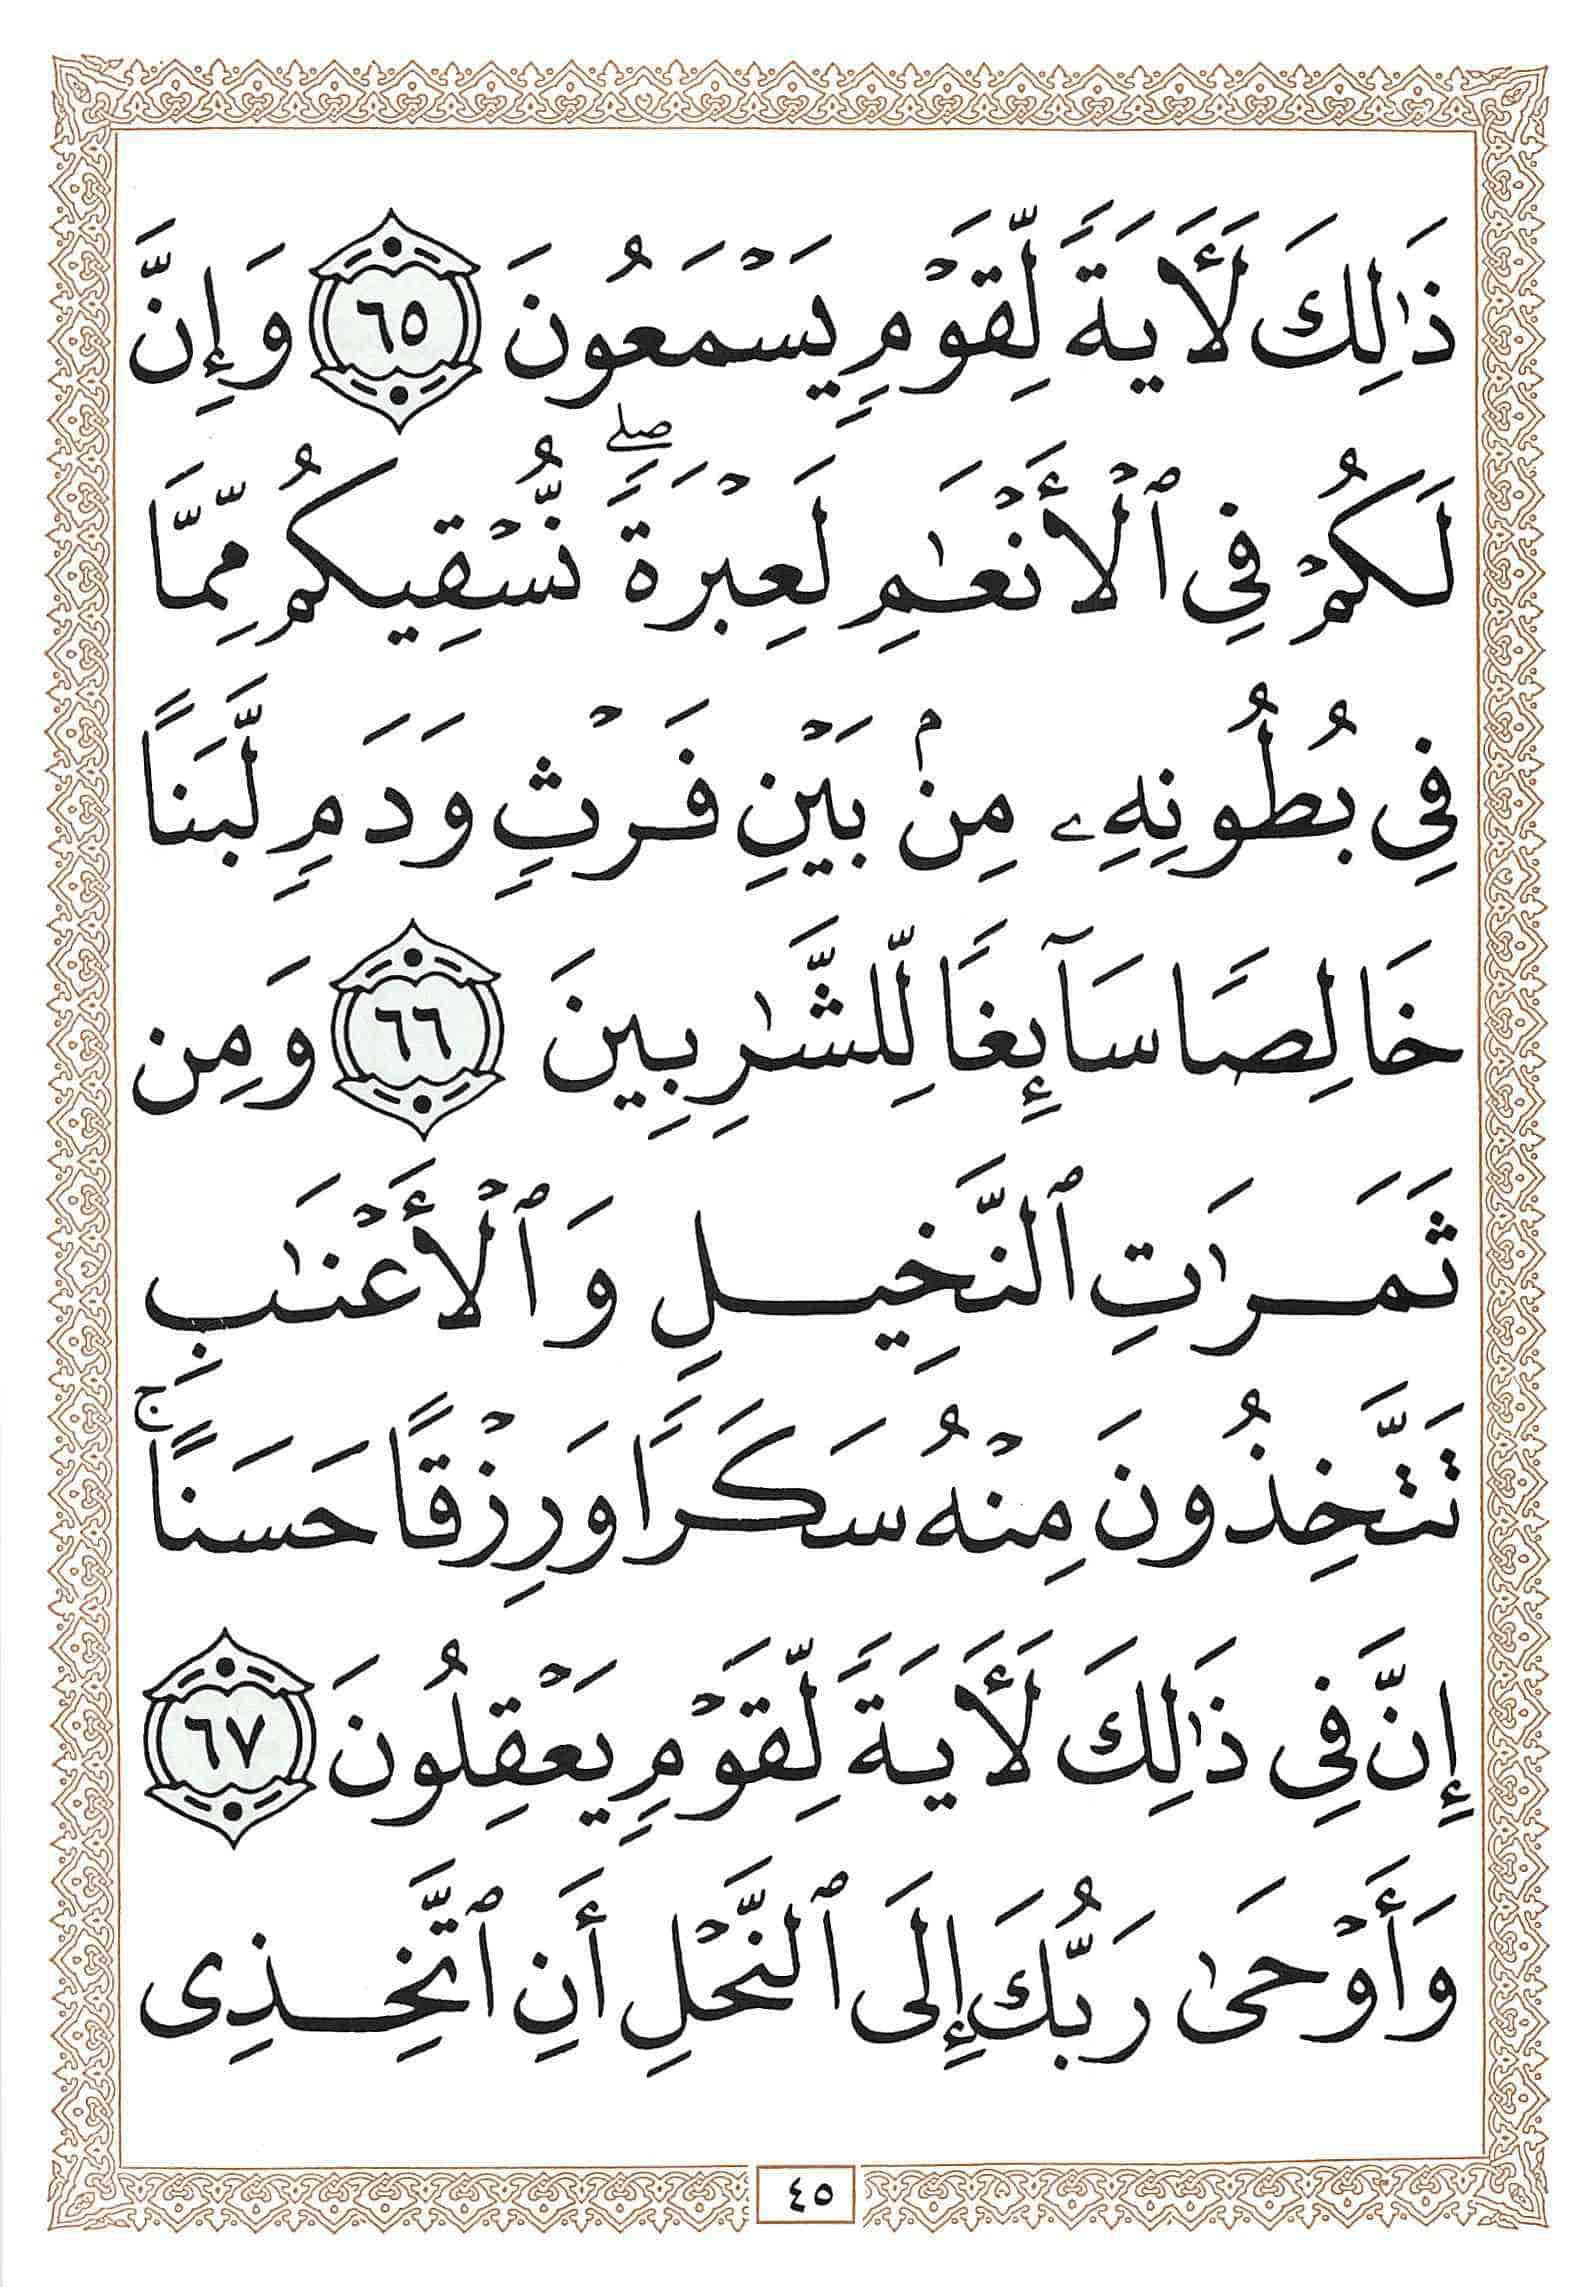 ذَٰلِكَ لَأَيَةً لِّقَوْمٍ يَسْمَعُونَ ٦٥ وَإِنَّ
لَكُمْ فِى ٱلْأَنْعَٰمِ لَعِبْرَةً ۖ نُّسْقِيكُم مِّمَّا
فِى بُطُونِهِۦ مِنۢ بَيْنِ فَرْثٍ وَدَمٍ لَّبَنًا
خَالِصًا سَآئِغًا لِّلشَّٰرِبِينَ ٦٦ وَمِن
ثَمَرَٰتِ ٱلنَّخِيلِ وَٱلْأَعْنَٰبِ
تَتَّخِذُونَ مِنْهُ سَكَرًا وَرِزْقًا حَسَنًا ۚ
إِنَّ فِى ذَٰلِكَ لَأَيَةً لِّقَوْمٍ يَعْقِلُونَ ٦٧
وَأَوْحَىٰ رَبُّكَ إِلَى ٱلنَّحْلِ أَنِ ٱتَّخِذِى
٤٥